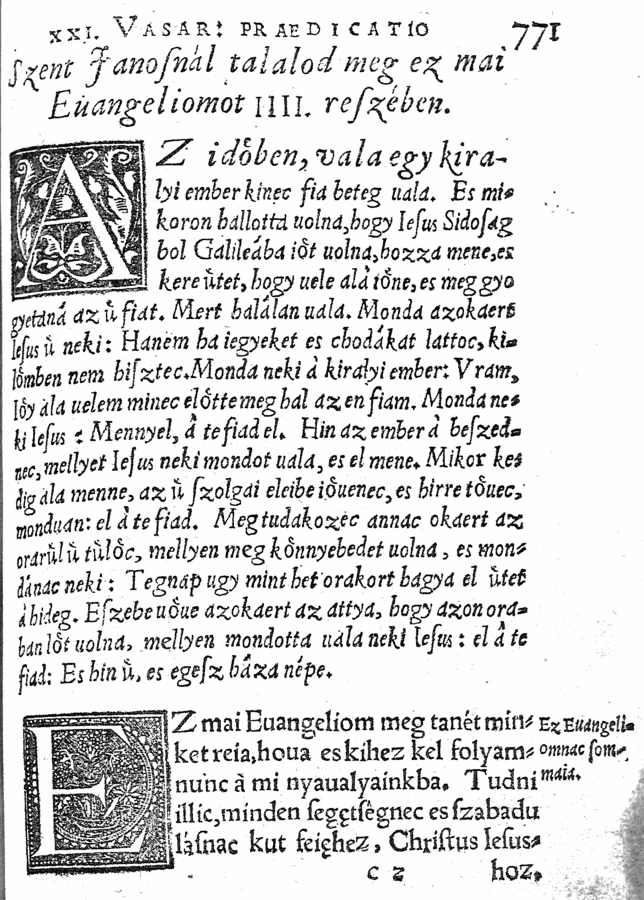 XXI. VASAR: PRAEDICATIO 771
Szent Janoſnál talalod meg ez mai
Eùangeliomot IIII. reſzében.
AZ idoͤben, vala egy kira-
lyi ember kinec fia beteg uala. Es mi⸗
koron hallotta uolna, hogy Ieſus Sidoſag
bol Galileába ioͤt uolna, hozza mene, es
kere uͤtet, hogy uele alá ioͤne, es meg gyo
gyetaná az uͤ fiat. Mert halálan uala. Monda azokaert
Ieſus uͤ neki: Hanem ha iegyeket es chodákat lattoc, ki⸗
loͤmben nem hiſztec. Monda neki à kiralyi ember: Vram,
Ioͤy ala uelem minec eloͤtte meg hal az en fiam. Monda ne⸗
ki Ieſus: Mennyel, à te fiad el. Hin az ember à beſzed⸗
nec, mellyet Ieſus neki mondot uala, es el mene. Mikor ke⸗
dig ala menne, az uͤ ſzolgai eleibe ioͤuenec, es hirre toͤuec,
monduan: el à te fiad. Megtudakozéc annac okaert az
orárúl uͤ tuͤloͤc, mellyen meg koͤnnyebedet uolna, es mon⸗
dánac neki: Tegnáp ugy mint het orakort hagya el uͤtet
à hideg. Eſzebe uoͤue azokaert az attya, hogy azon ora⸗
ban loͤt uolna, mellyen mondotta uala neki Ieſus: el à te
fiad: Es hin uͤ, es egeſz háza népe.
EZ mai Euangeliom meg tanét min⸗
ket reia, houa es kihez kel folyam⸗
nunc à mi nyaualyainkba. Tudni
illic, minden ſegetſégnec es ſzabadu
láſnac kut feiéhez, Chriſtus Ieſus⸗
Ez Euangeli⸗
omnac ſom⸗
maia.
c 2 hoz,